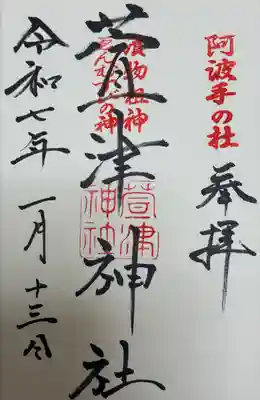 阿波手の杜
奉拝
漬物祖神
縁むすびの神
萱津神社
萱津
神社
令和七年 一月 十三日